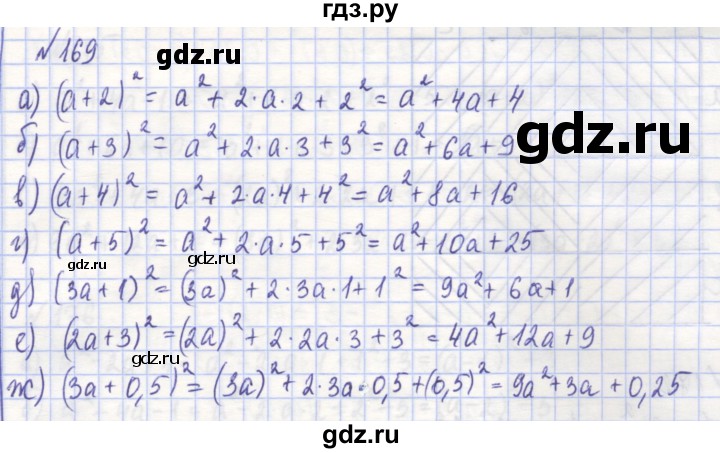 гдз.ру
№169
gdz.ru
а) (a+2)² = a² + 2·a·2 + 2² = a² + 4a + 4
б) (a+3)² = a² + 2·a·3 + 3² = a² + 6a + 9
gdz.ru
в) (a+4)² = a² + 2·a·4 + 4² = a² + 8a + 16
г) (a+5)² = a² + 2·a·5 + 5² = a² + 10a + 25
gdz.ru
gdz.ru
д) (3a+1)² = (3a)² + 2·3a·1 + 1² = 9a² + 6a + 1
е) (2a+3)² = (2a)² + 2·2a·3 + 3² = 4a² + 12a + 9
gdz.ru
ж) (3a + 0,5)² = (3a)² + 2·3a·0,5 + (0,5)² = 9a² + 3a + 0,25
gdz.ru